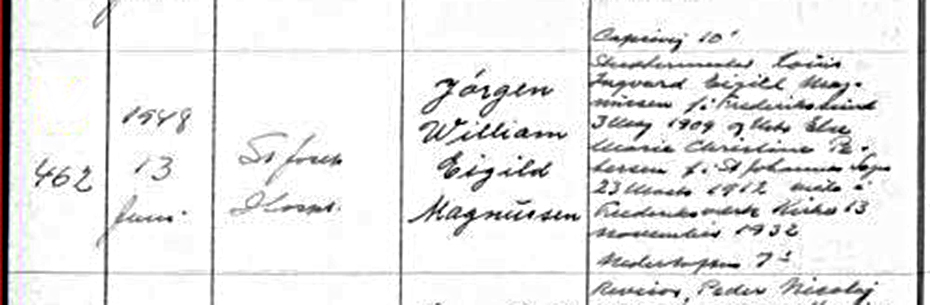 462
1948
13
Juni.
St Joseph
Hospt.
Jörgen
William
Eigild
Magnussen
Caprivej 10'
Louis
Ingvard Eigild Mag-
nussen f. i Frederikssund
3 May 1909 og Else
Marie Christine Pe-
tersen f. i St Johannes Sogn
23 Marts 1912 viet i
Frederiksværk Kirke 13
November 1932
7
Revisor Peder Nicolaj